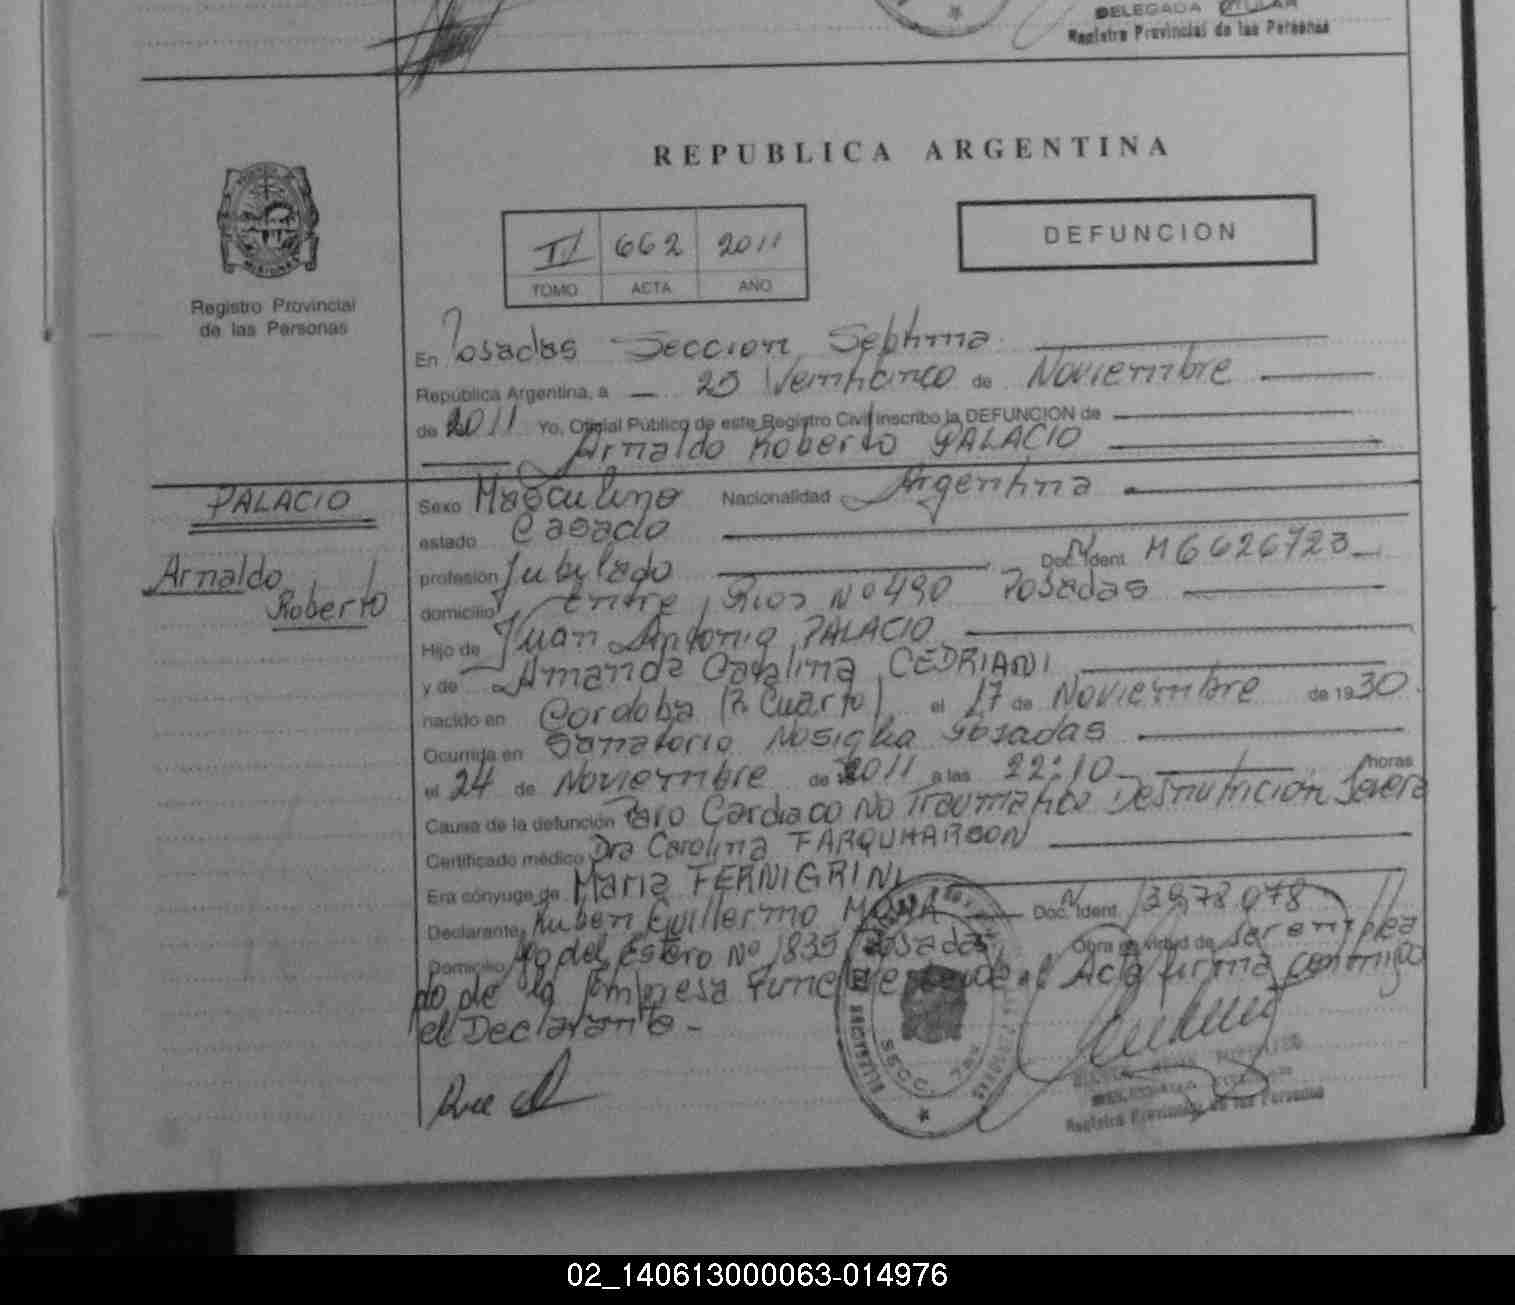 DELEGADA TITULAR
Registro Provincial de las Personas
REPUBLICA ARGENTINA
II 662 2011
TOMO ACTA AÑO
DEFUNCION
MISIONES
Registro Provincial
de las Personas
En Posadas Seccion Septima
República Argentina, a 25 Veinticinco de Noviembre
de 2011 Yo, Oficial Público de este Registro Civil inscribo la DEFUNCION de
Arnaldo Roberto PALACIO
PALACIO
Arnaldo
Roberto
Sexo Masculino Nacionalidad Argentina
estado Casado
profesión Jubilado Doc. Ident. M6626723
domicilio Entre Rios Nº 490 Posadas
Hijo de Juan Antonio PALACIO
y de Amanda Catalina CEDRIANI
nacido en Cordoba (R. Cuarto) el 17 de Noviembre de 1930
Ocurrida en Sanatorio Nosiglia Posadas
el 24 de Noviembre de 2011 a las 22:10 horas
Causa de la defunción Paro Cardiaco No Traumatico Desnutrición Severa
Certificado médico Dra Carolina FARQUHARSON
Era cónyuge de Maria FERNIGRINI
Declarante Ruben Guillermo Doc. Ident.
Domicilio Sgo del Estero Nº 1835 Posadas Obra en virtud de ser emplea
do de la Empresa el Acta firma conmigo
el Declarante -
SECC. 7ma
Registro Provincial de las Personas
02_140613000063-014976